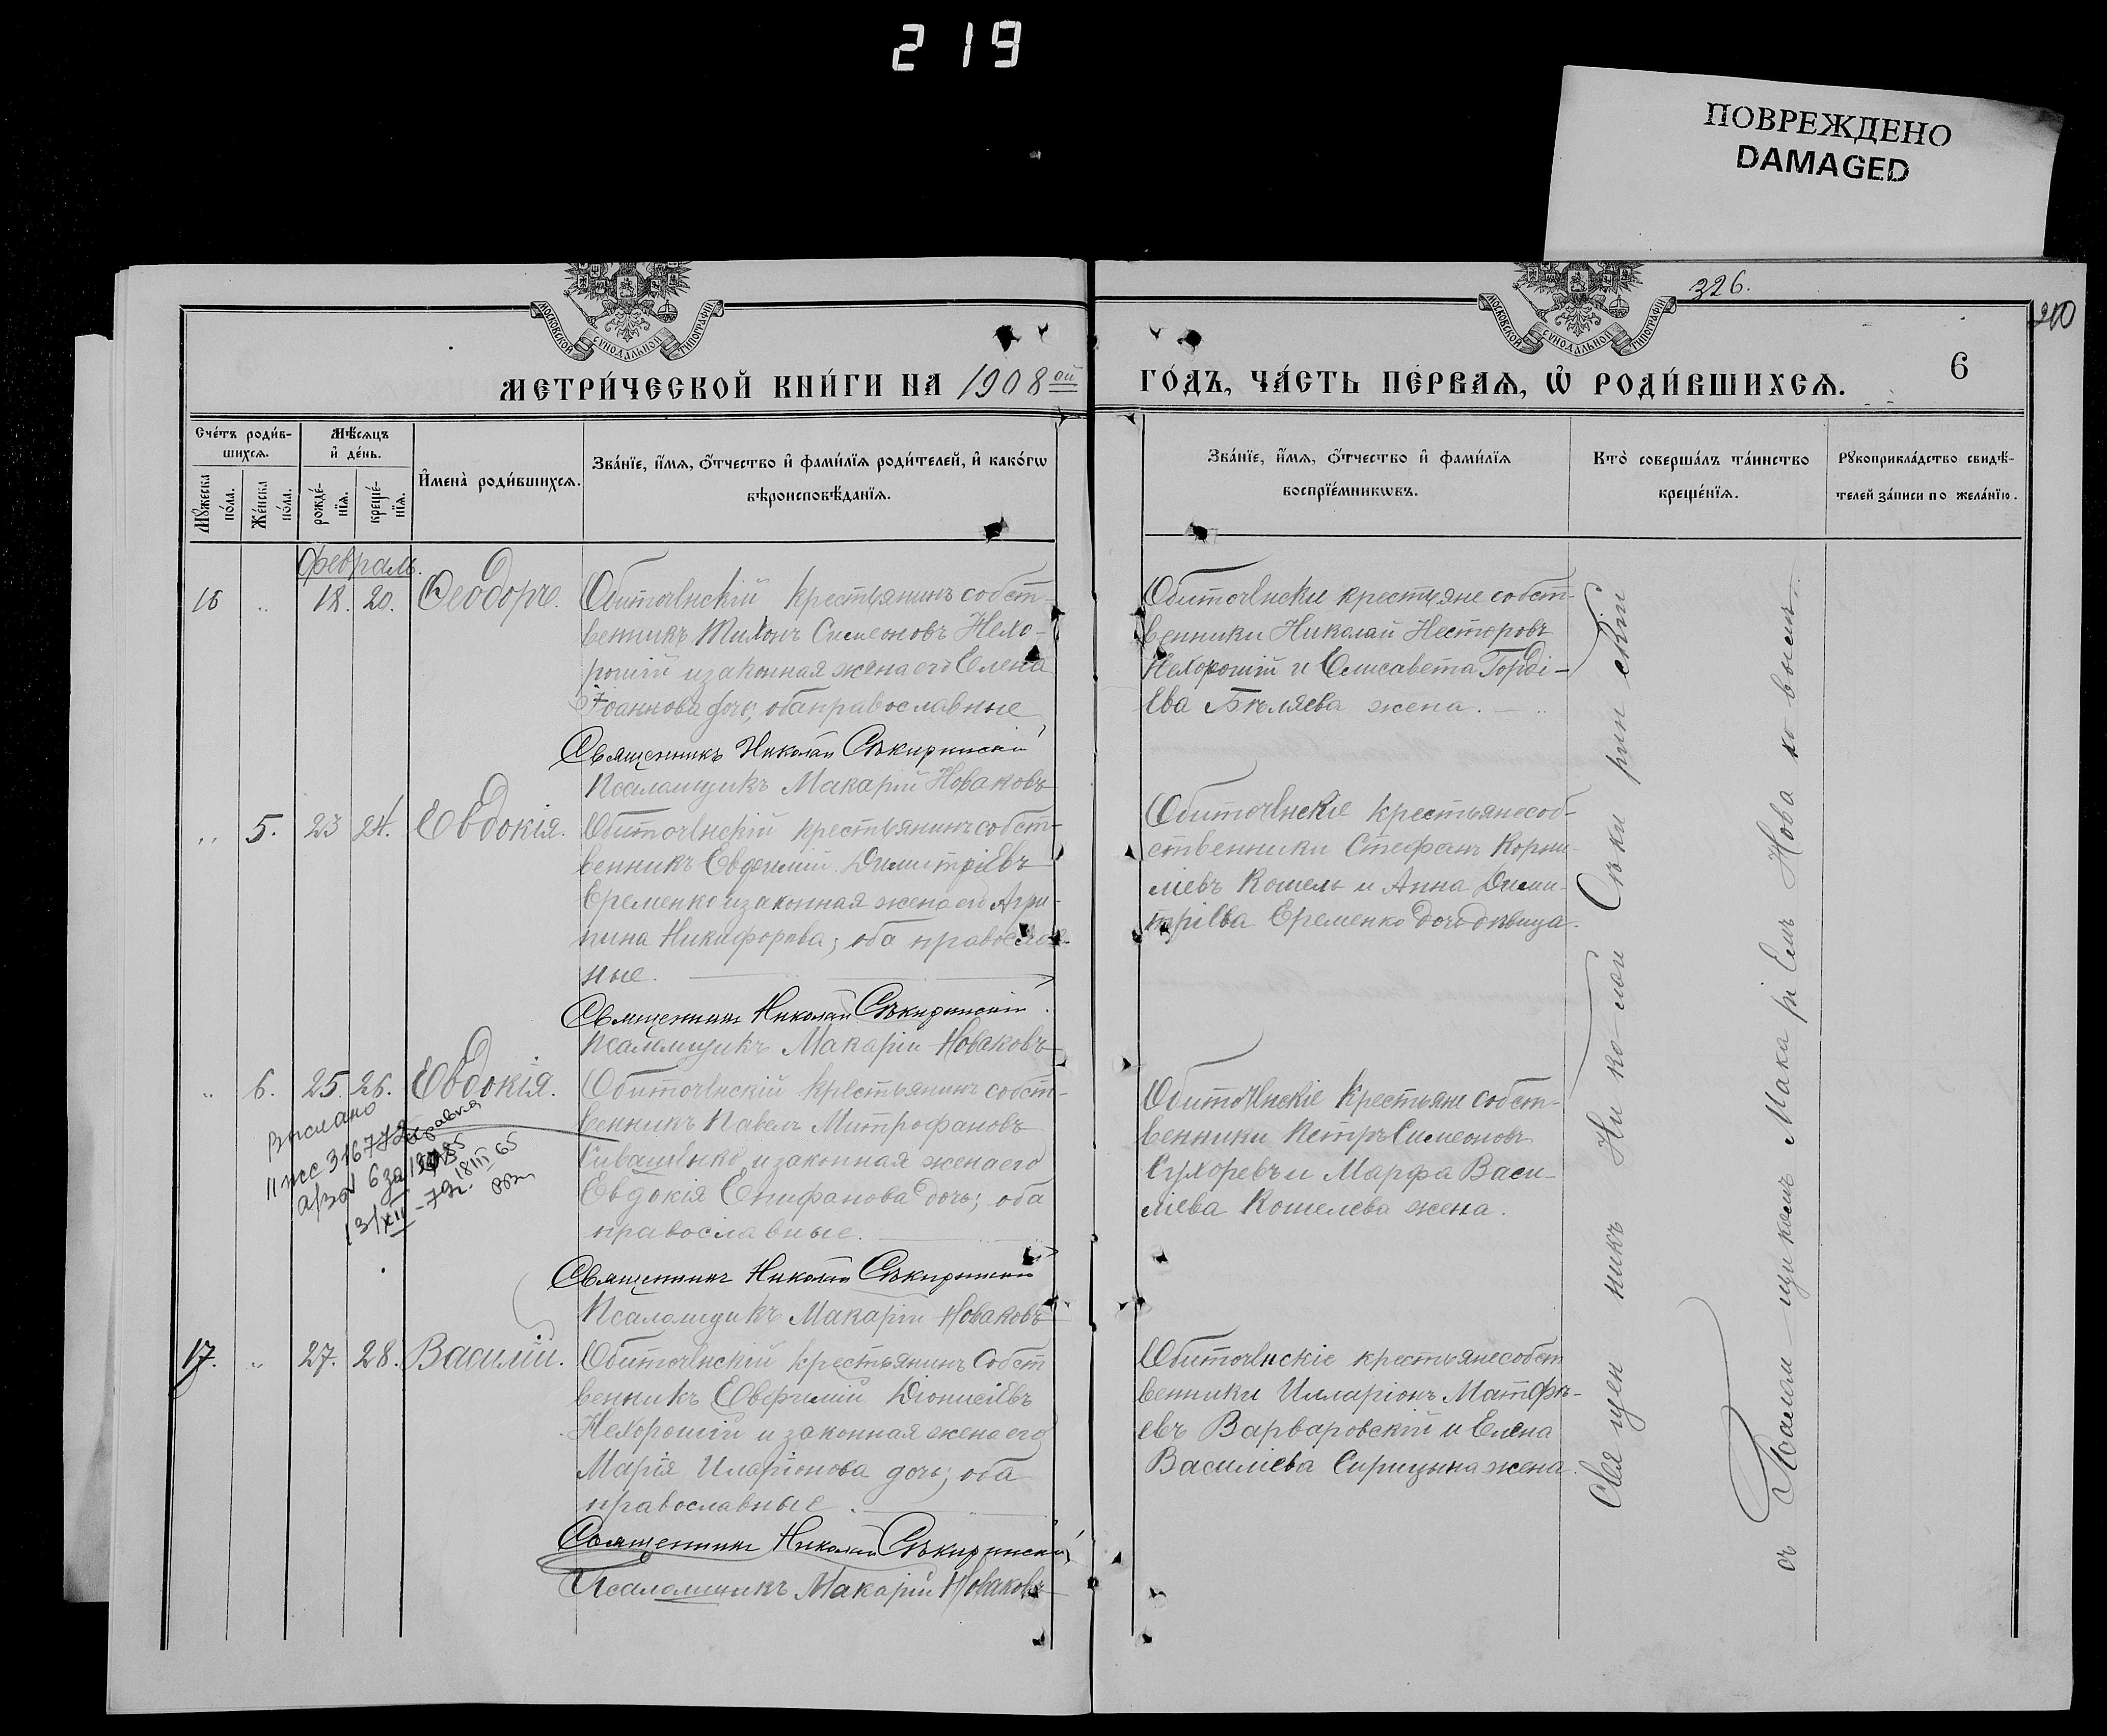 219
ПОВРЕЖДЕНО
DAMAGED
326.
210
МОСКОВСКОЙ СѴНОДАЛЬНОЙ ТИПОГРАФІИ
МОСКОВСКОЙ СѴНОДАЛЬНОЙ ТИПОГРАФІИ
МЕТРИ́ЧЕСКОЙ КНИ́ГИ НА 1908 ой
ГО́ДЪ, ЧА́СТЬ ПЕ́РВАѦ, Ѡ҆ РОДИ́ВШИХСѦ.
6
Сче́тъ роди́в-
шихсѧ.
Мѣ́сѧцъ
и҆ де́нь.
Мꙋ́жеска
по́ла.
Же́нска
по́ла.
рожде́-
нїѧ.
креще́-
нїѧ.
И҆мена̀ роди́вшихсѧ.
Зва́нїе, и҆́мѧ, ѻ҆́тчество и҆ фами́лїѧ роди́телей, и҆ како́гѡ
вѣроисповѣ́данїѧ.
Зва́нїе, и҆́мѧ, ѻ҆́тчество и҆ фами́лїѧ
воспрїе́мникѡвъ.
Кто̀ соверша́лъ та́инство
креще́нїѧ.
Рꙋкоприкла́дство свидѣ́-
телей за́писи по жела́нїю.
Февраль.
16 " 18. 20. Ѳеодоръ.
Обиточенскій крестьянинъ собст-
венникъ Тихонъ Симеоновъ Нехо-
рошій и законная жена его Елена
Іоаннова дочь; оба православные
Священникъ Николай Сѣкиринскій
Псаломщикъ Макарій Новаковъ
Обиточенски крестьяне собст-
венники Николай Несторовъ
Нехорошій и Елисавета Горді-
ева Бѣляева жена.
" 5. 23 24. Евдокія.
Обиточенскій крестьянинъ собст-
венникъ Евфимій Димитріевъ
Еременко и законная жена его Агри-
пина Никифорова; оба православ-
ные.
Священникъ Николай Сѣкиринскій
Псаломщикъ Макарій Новаковъ
Обиточенскіе крестьяне соб-
ственники Стефанъ Корни-
ліевъ Кошель и Анна Дими-
тріева Еременко дочь дѣвица.
" 6. 25. 26. Евдокія.
Обиточенскій крестьянинъ собст-
венникъ Павелъ Митрофановъ
Сивашенко и законная жена его
Евдокія Епифанова дочь; оба
православные.
Священникъ Николай Сѣкиринскій
Псаломщикъ Макарій Новаковъ
Обиточенскіе крестьяне собст-
венники Петръ Симеоновъ
Сухоревъ и Марфа Васи-
ліева Кошелева жена.
Выслано
17. " 27. 28. Василій.
Обиточенскій крестьянинъ собст
венникъ Евфимій Діонисіевъ
Нехорошій и законная жена его
Марія Иларіонова дочь; оба
православные.
Священникъ Николай Сѣкиринскій
Псаломщикъ Макарій Новаковъ
Обиточенскіе крестьяне собст
венники Илларіонъ Матфѣ-
евъ Варваровскій и Елена
Василіева Сирицына жена.
Священникъ Николай Сѣкиринскій
съ Псаломщикомъ Макаріемъ Новаковымъ.